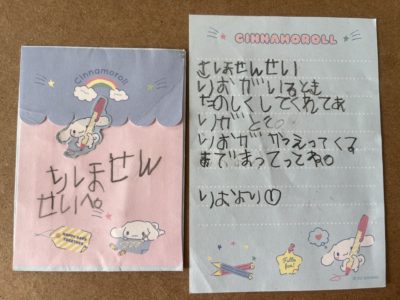 Cinnamoroll
ちしません
せんせいへ。
HAPPY DAYS
TOGETHER
CINNAMOROLL
さしませんせい
りおがいるとき
たのしくしてくれてあ
りがとう。
りおが かえってくる
まで まってってね。
りおより
Hello